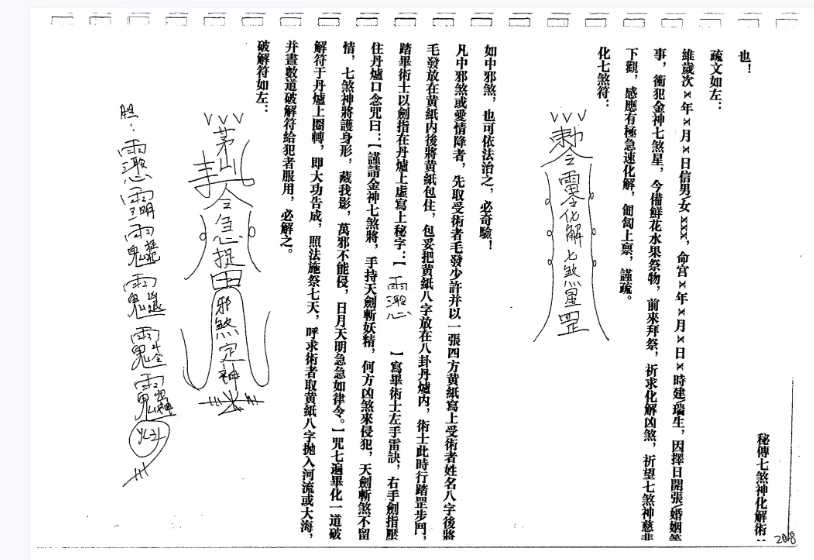 秘傳七煞神化解術：
也！
疏文如左：
維歲次×年×月×日信男女×××，命宫×年×月×日×時建瑞生，因擇日開張婚姻等
事，衝犯金神七煞星，今備鮮花水果祭物，前來拜祭，祈求化解凶煞，祈望七煞神慈悲
下觀，感應有極急速化解，匍匐上禀，謹疏。
化七煞符：
敕令 化解七煞星罡
如中邪煞，也可依法治之，必奇驗！
凡中邪煞或愛情降者，先取受術者毛發少許并以一張四方黄紙寫上受術者姓名八字後將
毛發放在黄紙内後將黄紙包住，包妥把黄紙八字放在八卦丹爐内，術士此時行踏罡步鬥，
踏畢術士以劍指在丹爐上虚寫上秘字：【 】寫畢術士左手雷訣，右手劍指壓
住丹爐口念咒曰：【謹請金神七煞將，手持天劍斬妖精，何方凶煞來侵犯，天劍斬煞不留
情，七煞神將護身形，藏我影，萬邪不能侵，日月天明急急如律令。】咒七遍畢化一道破
解符于丹爐上圈轉，即大功告成，照法施祭七天，呼求術者取黄紙八字抛入河流或大海，
并晝數道破解符給犯者服用，必解之。
破解符如左：
茅山 令急捉 邪煞定神
胆：
208